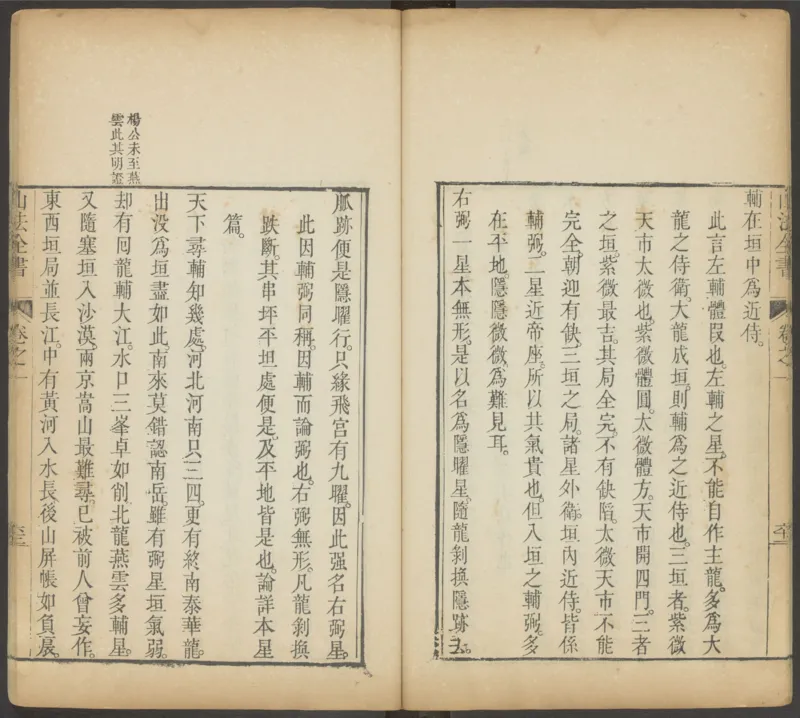 輔在垣中為近侍。
此言左輔體叚也。左輔之星。不能自作主龍。多為大
龍之侍衛。大龍成垣。則輔為之近侍也。三垣者。紫微
天市太微也。紫微體圓。太微體方。天市開四門。三者
之垣。紫微最吉。其局全完。不有缺陷。太微天市不能
完全。朝迎有缺。三垣之局。諸星外衛。垣內近侍。皆係
輔弼。二星近帝座。所以共氣貴也。但入垣之輔弼。多
在平地。隱隱微微。為難見耳。
右弼一星本無形。是以名為隱曜星。隨龍剝換隱跡去。
脈跡便是隱曜行。只緣飛宮有九曜。因此强名右弼星。
此因輔弼同稱。因輔而論弼也。右弼無形。凡龍剝換
跌斷。其串坪平坦處便是。及平地皆是也。論詳本星
篇。
天下尋輔知幾處。河北河南只三四。更有終南泰華龍。
出没為垣盡如此。南來莫錯認南岳。雖有弼星垣氣弱。
却有回龍輔大江。水口三峯卓如削。北龍燕雲多輔星。
又隨塞垣入沙漠。兩京嵩山最難尋。已被前人曾妄作。
東西垣局並長江。中有黃河入水長。後山屏帳如負扆。
楊公未至燕
雲此其明證
山法全書
卷之一